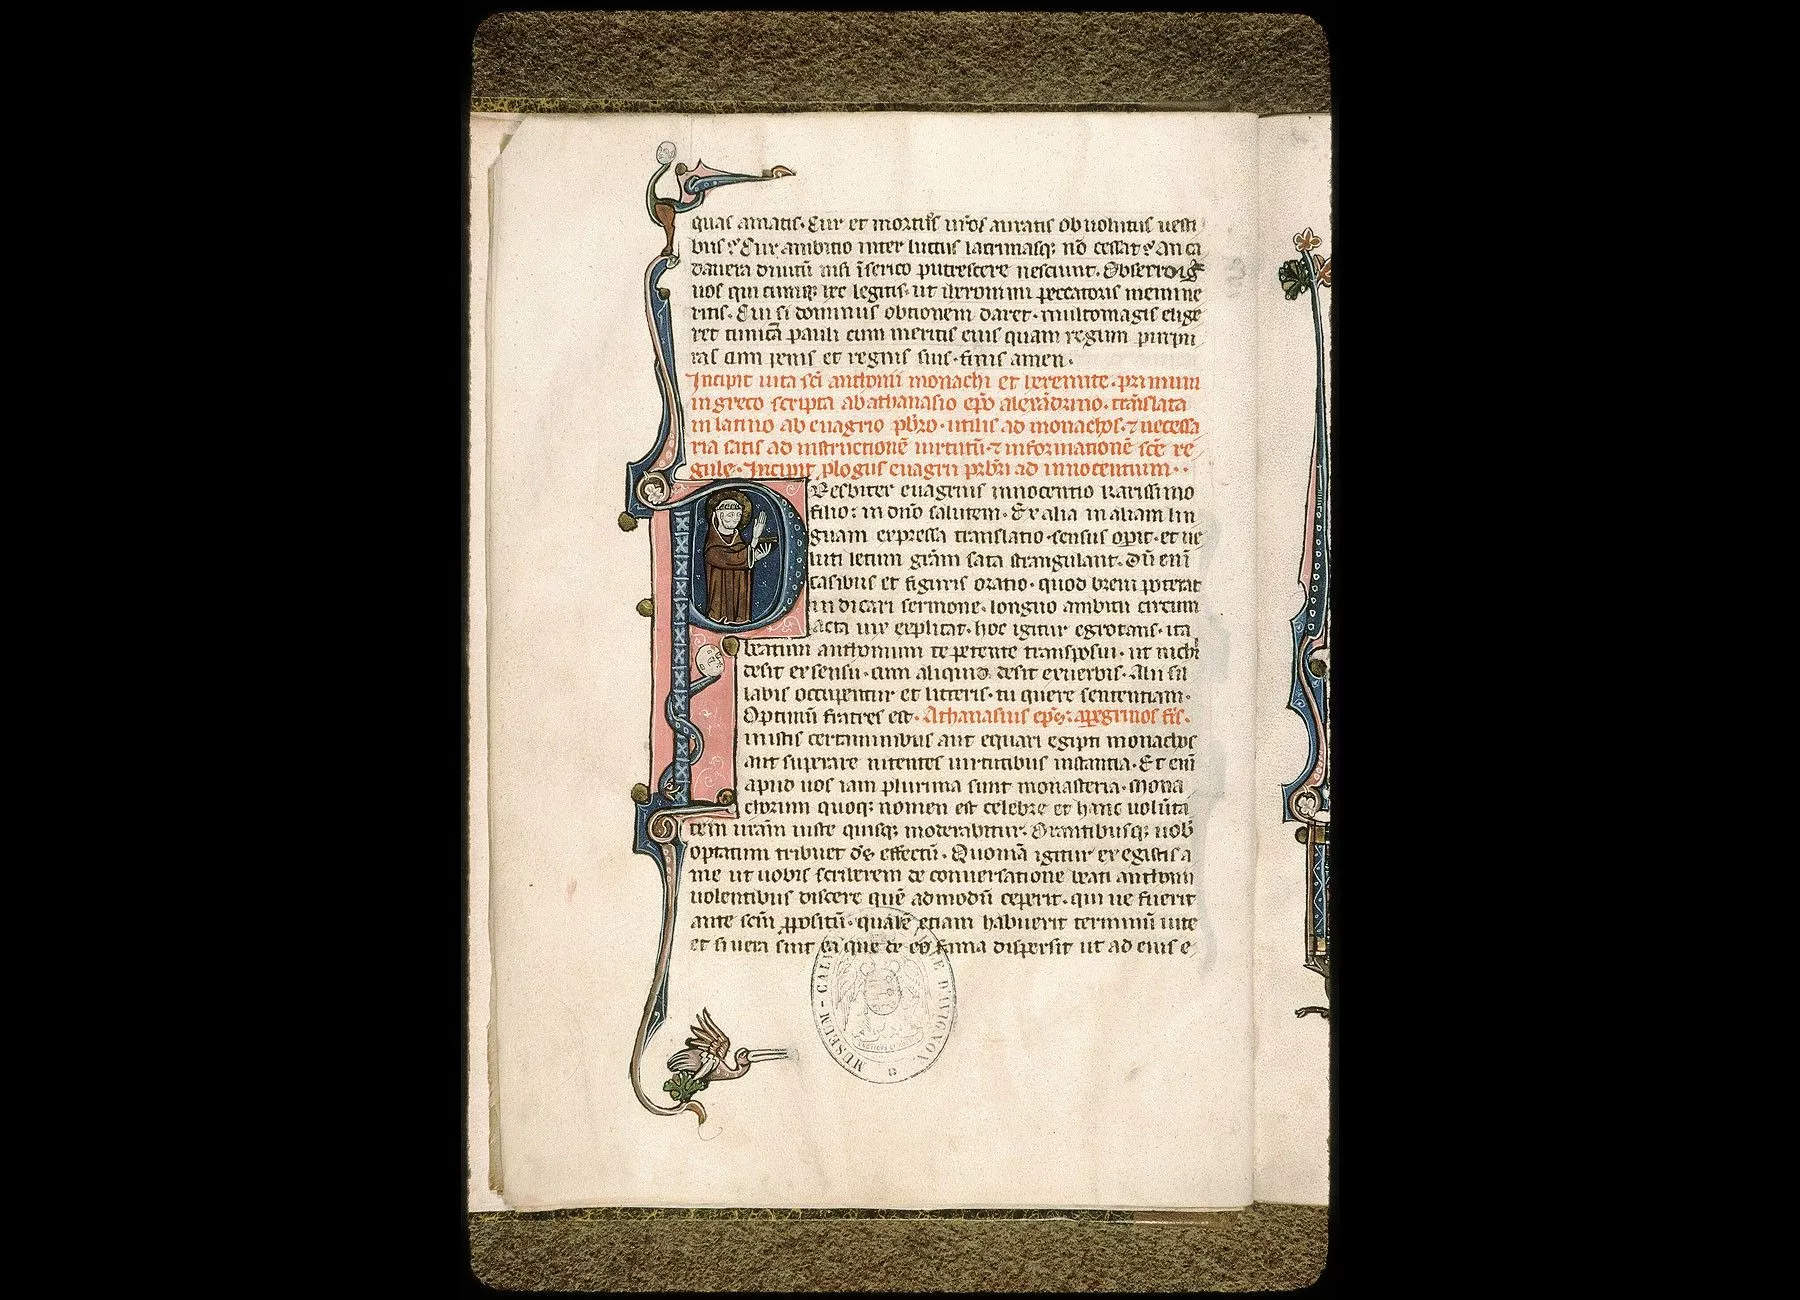 quas amatis. Cur et mortuos vr̃os auratis obuoluitis uesti
bus? Cur ambitio inter luctus lacrimasq; nõ cessat? An ca
dauera diuitũ nisi ĩ serico putrescere nesciunt. Obsecro
uos qui cumq; hec legitis. ut iheronimi peccatoris memine
ritis. Cui si dominus obtionem daret. multomagis elige
ret tunicã pauli cum meritis eius quam regum purpu
ras cum penis et regnis suis. finis amen.
Incipit uita sc̃i anthonii monachi et heremite. primum
in greco scripta ab athanasio ep̃o alexãdrino. trãslata
in latino ab euagrio pb̃ro. utilis ad monachos. ⁊ necessa
ria satis ad instructionẽ uirtutũ ⁊ informationẽ sc̃e re
gule. Incipit ꝓlogus euagrii prb̃ri ad innocentium..
PResbiter euagrius innocentio karissimo
filio: in dño salutem. Ex alia in aliam lin
guam expressa translatio. sensus opit. et ue
luti letum grãm sata strangulant. Dũ enĩ
casibus et figuris oratio. quod breui poterat
indicari sermone. longuo ambitu circum
acta uix explicat. hoc igitur egrotans. ita
beatum anthonium te petente transposui. ut nichil
desit ex sensu. cum aliquid desit ex uerbis. Alii sil
labis occupentur et litteris. tu quere sententiam.
Optimũ fratres est. Athanasius ep̃s: a peregrinos frẽs.
inistis certaminibus aut equari egipti monachos
aut superare nitentes uirtutibus instancia. Et enĩ
apud uos iam plurima sunt monasteria. Mona
chorum quoq; nomen est celebre et hanc uolũta
tem uram iuste quisq; moderabitur. Orantibusq; uob
optatum tribuet d̃s effectũ. Quoniã igitur exegistis a
me ut uobis scriberem de conuersatione beati anthonii
uolentibus discere quẽ admodũ ceperit. qui ue fuerit
ante sc̃m ꝓpositũ. qualẽ etiam habuerit terminũ uite
et si uera sint ea que de eo fama dispersit ut ad eius e
MUSEUM-CALVET VILLE D'AVIGNON